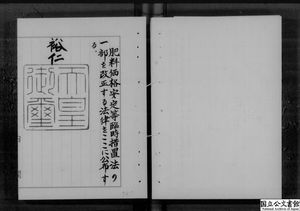 肥料価格安定等臨時措置法の
一部を改正する法律をここに公布す
る。
裕仁
天皇
御璽
国立公文書館